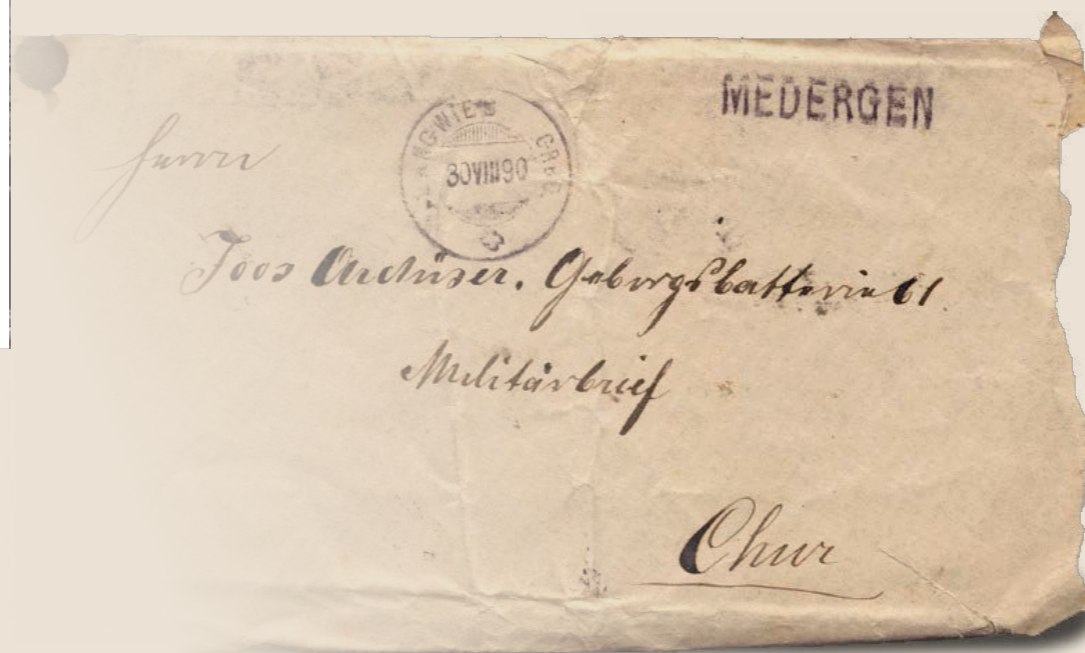 MEDERGEN
LANGWIES
30 VIII 90
Herrn
Joos Ardüser. Gebirgsbatterie 61.
Militärbrief
Chur